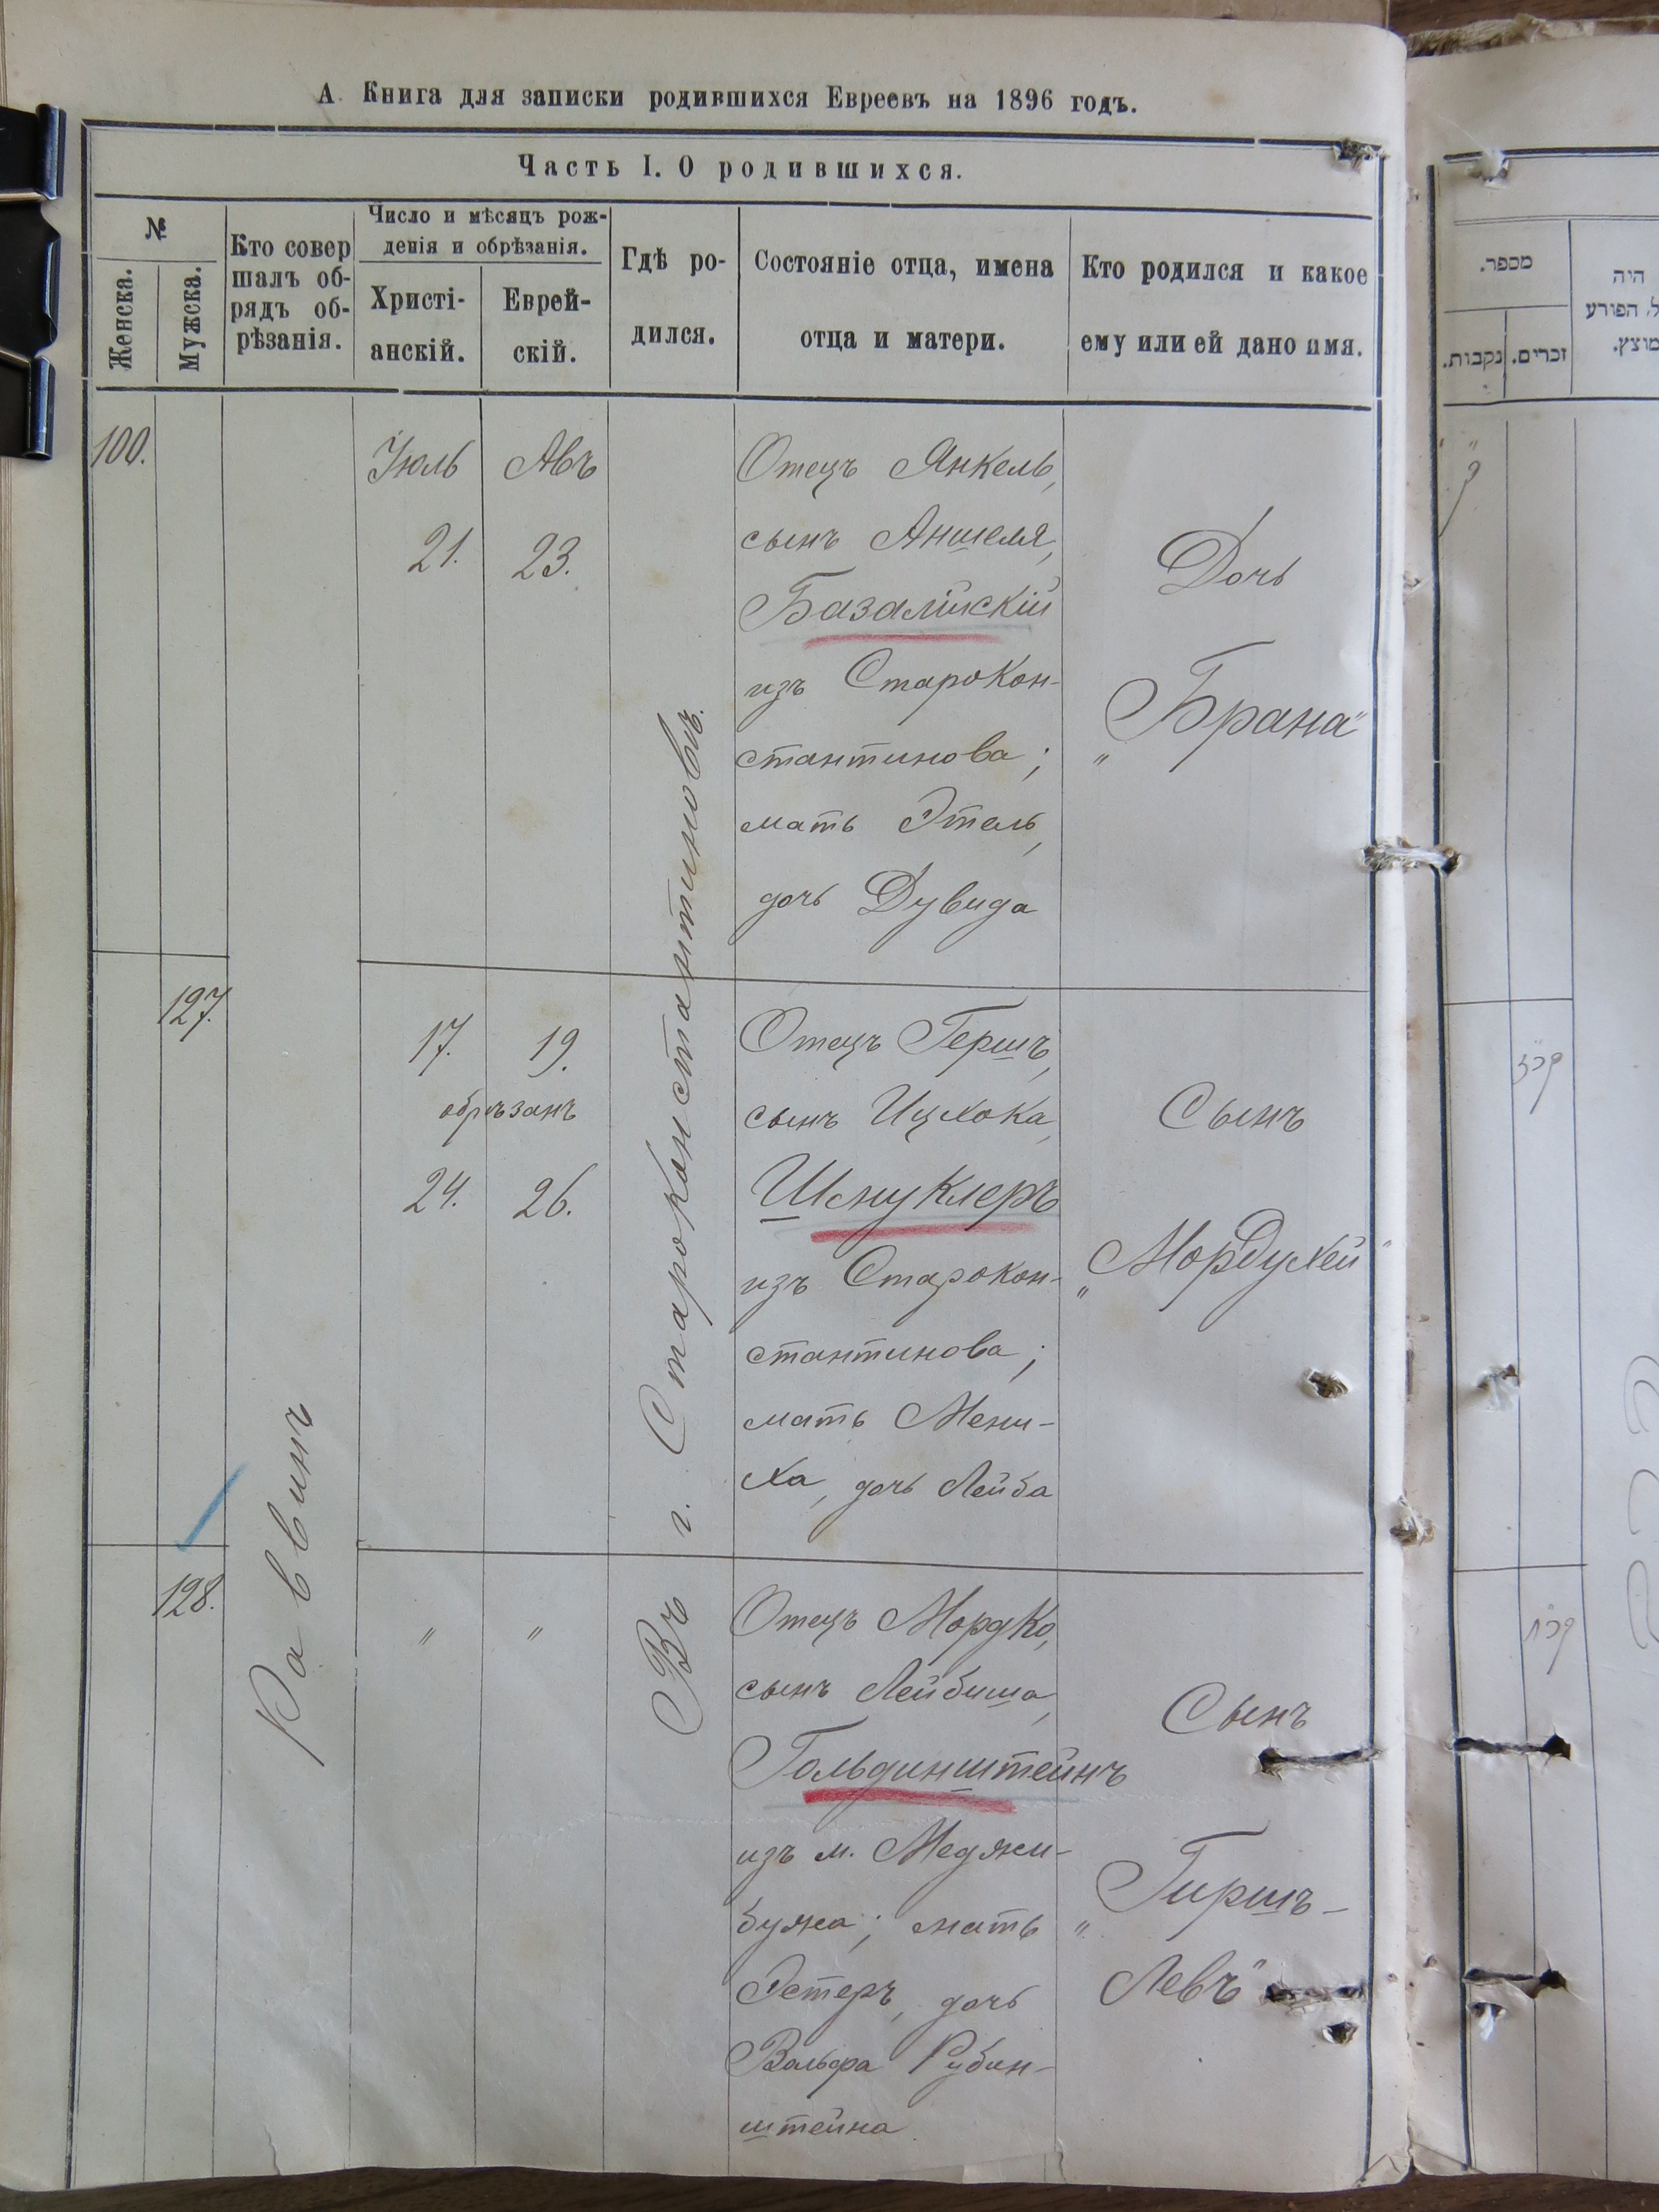 А. Книга для записки родившихся Евреевъ на 1896 годъ.
Часть I. О родившихся.
№
Женска.
Мужска.
Кто совер
шалъ об-
рядъ об-
рѣзанія.
Число и мѣсяцъ рож-
денія и обрѣзанія.
Христі-
анскій.
Еврей-
скій.
Гдѣ ро-
дился.
Состояніе отца, имена
отца и матери.
Кто родился и какое
ему или ей дано имя.
100.
Іюль
Авъ
21.
23.
Отецъ Янкель,
сынъ Аншеля,
Базалійскій
изъ Старокон-
стантинова;
мать Этель,
дочь Дувида
Дочь
„Брана"
127.
17.
19.
обрѣзанъ
24.
26.
Отецъ Гершъ,
сынъ Ицхока,
Шмуклеръ
изъ Старокон-
стантинова;
мать Мени-
ха, дочь Лейба
Сынъ
„Мордухей"
128.
"
"
Отецъ Мордко,
сынъ Лейбиша,
Гольдинштейнъ
изъ м. Меджи-
бужа; мать
Эстеръ, дочь
Вольфа Рубин-
штейна.
Сынъ
„Гиршъ-
Левъ"
Раввинъ
Въ г. Староконстантиновѣ.
מספר.
נקבות.
זכרים.
היה
הפורע
מוצץ.
ק
קכז
קכח